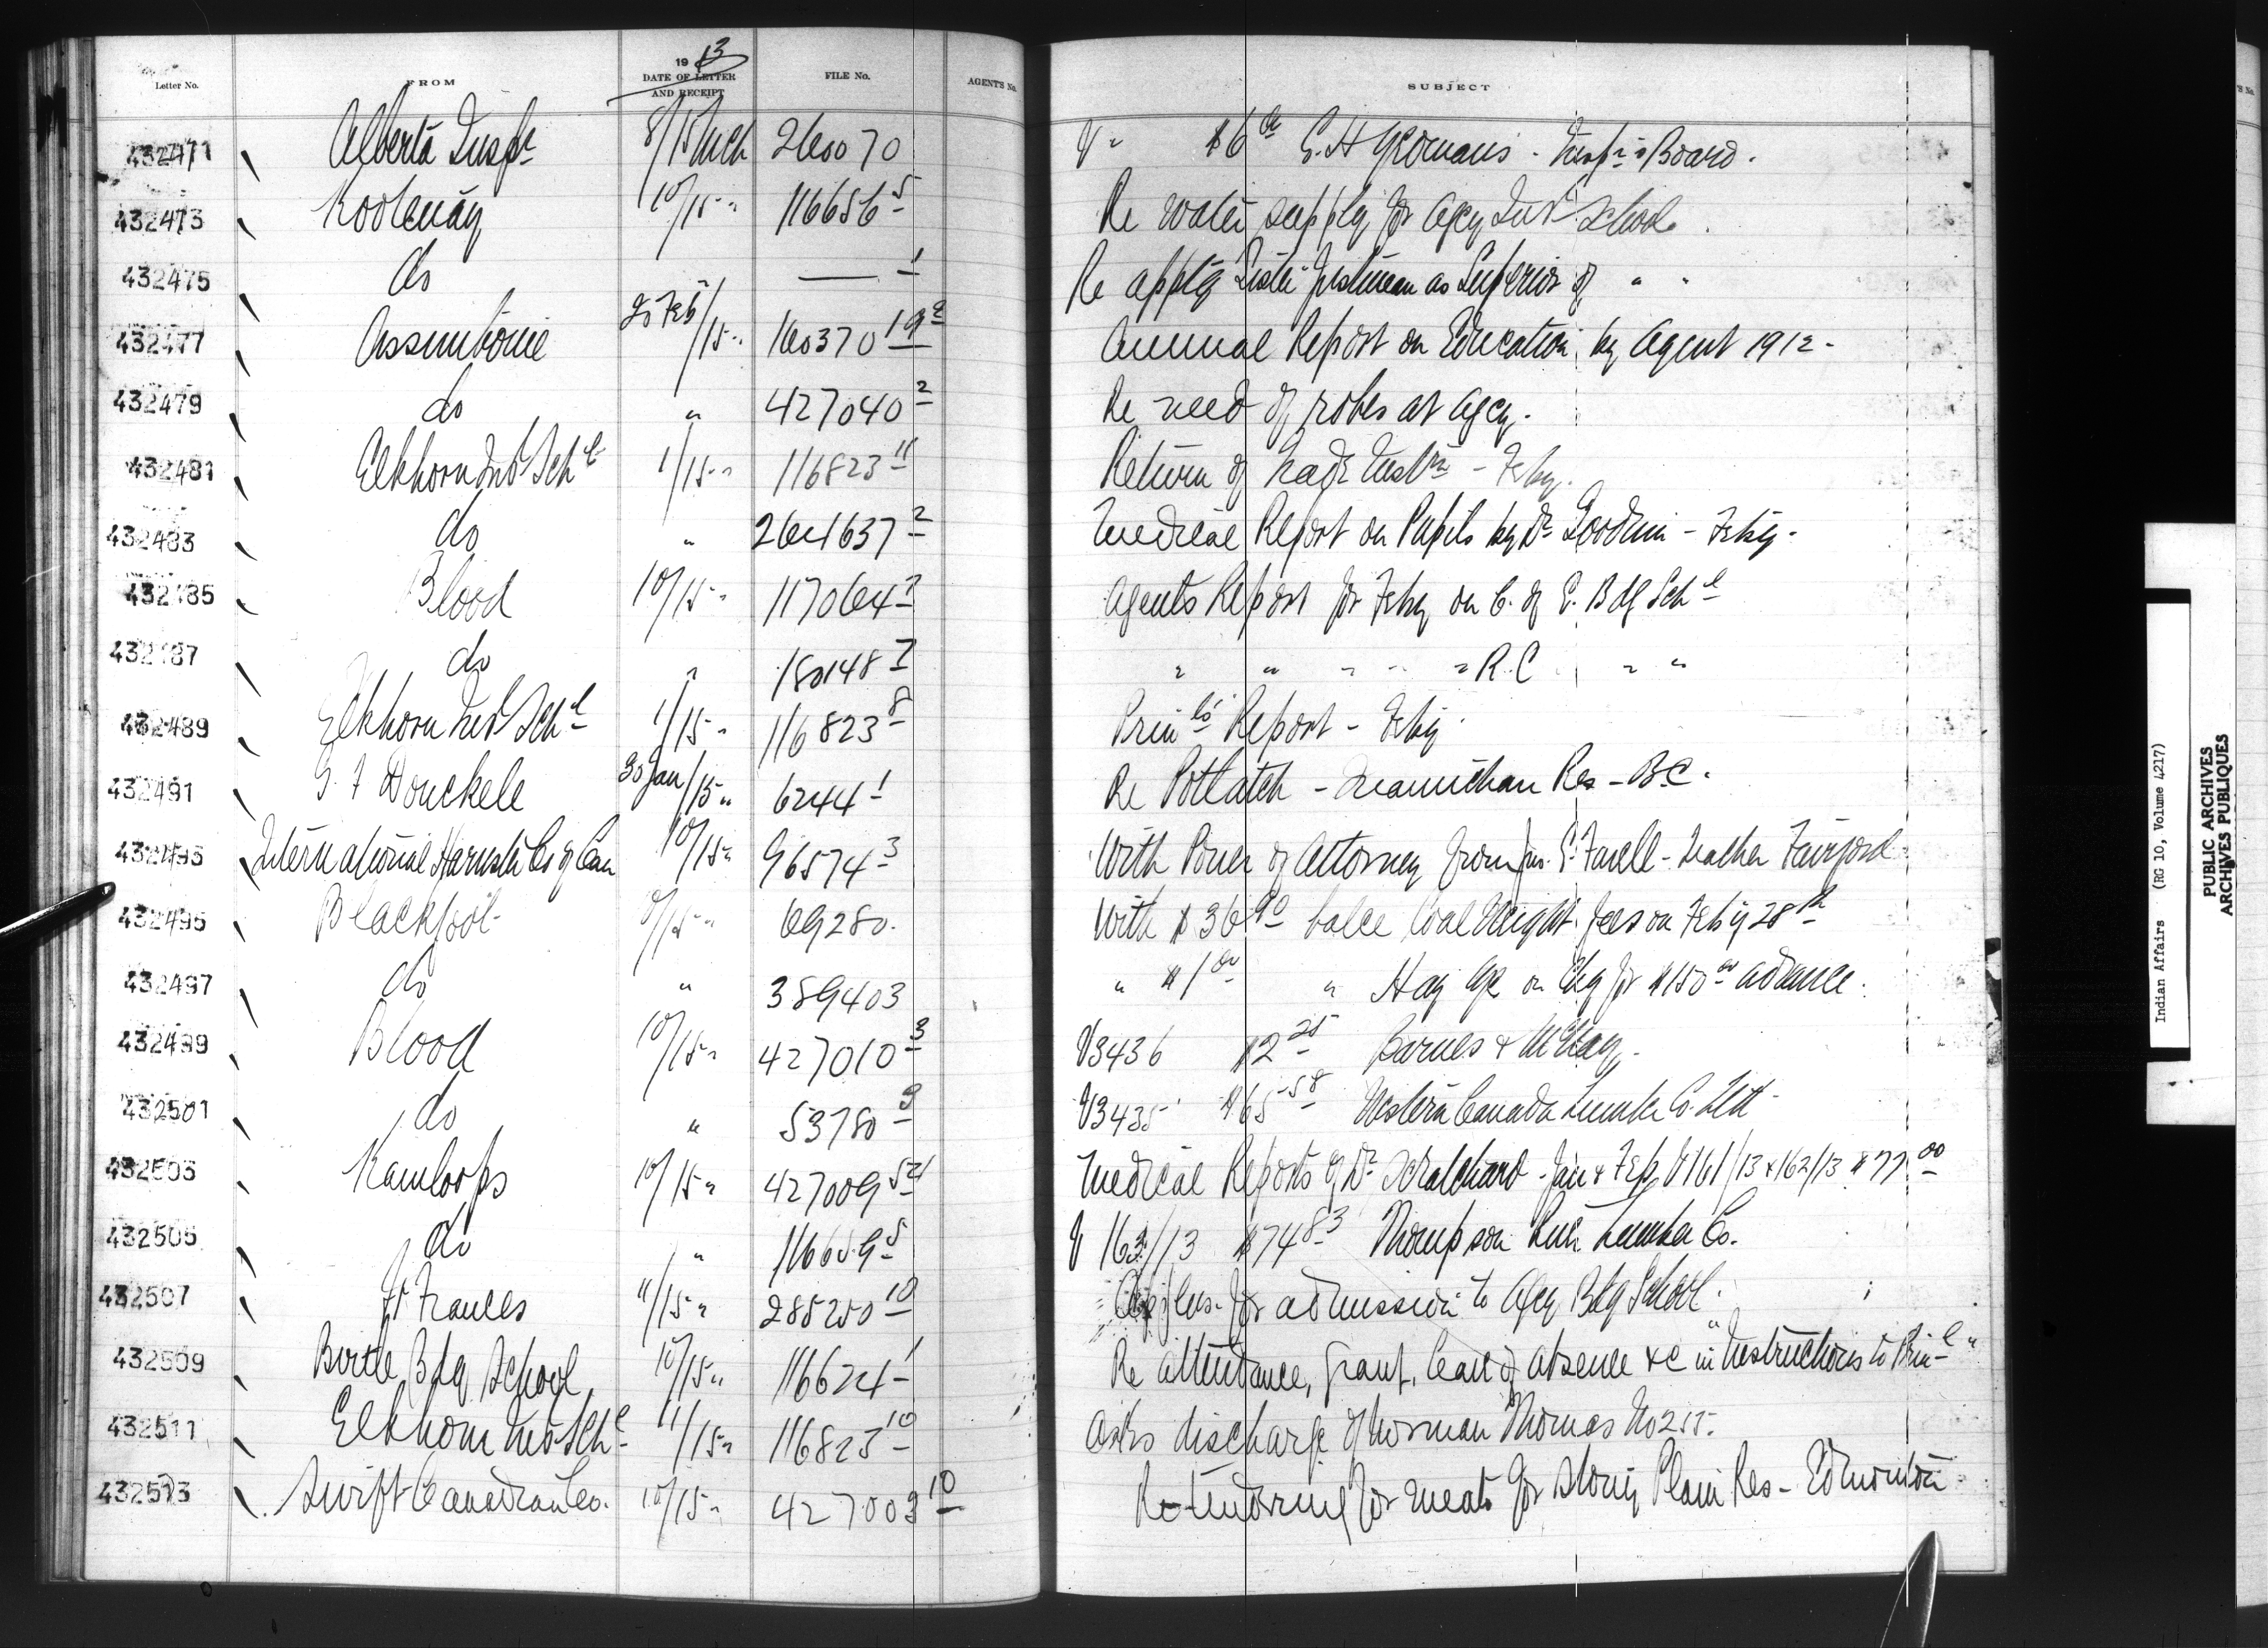 Letter No. FROM 1913 DATE OF LETTER AND RECEIPT FILE No. AGENTS No. SUBJECT
432471 Alberta Inspr 8/15 Mch 260070 V " $6 00 G. H. Yeomans - Insp's Board.
432473 Kootenay 10/15 " 116656 5 Re water supply for Agcy Indl School.
432475 do — 1 Re apptg Sister Justinian as Superior of " "
432477 Assiniboine 25 Feb/15 " 160370 19 Annual Report on Education by Agent 1912 -
432479 do " 427040 2 Re need of robes at Agcy.
432481 Elkhorn Ind Schl 1/15 " 116823 11 Return of Trade Instrn - Feby.
432483 do " 264637 2 Medical Report on Pupils by Dr Goodwin - Feby -
432485 Blood 10/15 " 117064 Agents Report for Feby on C. of E. Bdg Schl
432487 do " 180148 7 " " " " " R.C " "
432489 Elkhorn Ind Schl 1/15 " 116823 8 Prinls Report - Feby
432491 30 Jan/15 " 6244 1 Re Potlatch - Res - B.C.
432493 International Harvester Co of Can 10/15 " 96574 3 With Power of Attorney from Jno. G. Favell - Teacher Fairford
432495 Blackfoot /15 " 69280. With $36 balce Coal Weight fees on Feby 28th
432497 do " 389403 " $1 00 " Hay a/c on Chq for $150 00 advance.
432499 Blood 10/15 " 427010 3 V3436 $2 25 Barnes &
432501 do " 53780 V3435 $65 58 Western Canada Lumber Co. Ltd -
432503 Kamloops 10/15 " 427009 Medical Reports of Dr Scratchard - Jan & Feb, V161/13 & 162/13 $77 00
432505 do " 116659 5 V 163/13 $74 83 Thompson River Lumber Co.
432507 Ft Frances 11/15 " 285250 10 Applns. for admission to Agcy Bdg School.
432509 Birtle Bdg School 10/15 " 116624 1 Re attendance, grant, leave of absence &c in "Instructions to Prinl"
432511 Elkhorn Ind Schl 11/15 " 116823 10 Asks discharge of Norman Thomas No 255.
432513 Swift Canadian Co. 10/15 " 427003 10 Re tendering for meats for Stony Plain Res - Edmonton
Indian Affairs (RG 10, Volume 4217)
PUBLIC ARCHIVES
ARCHIVES PUBLIQUES